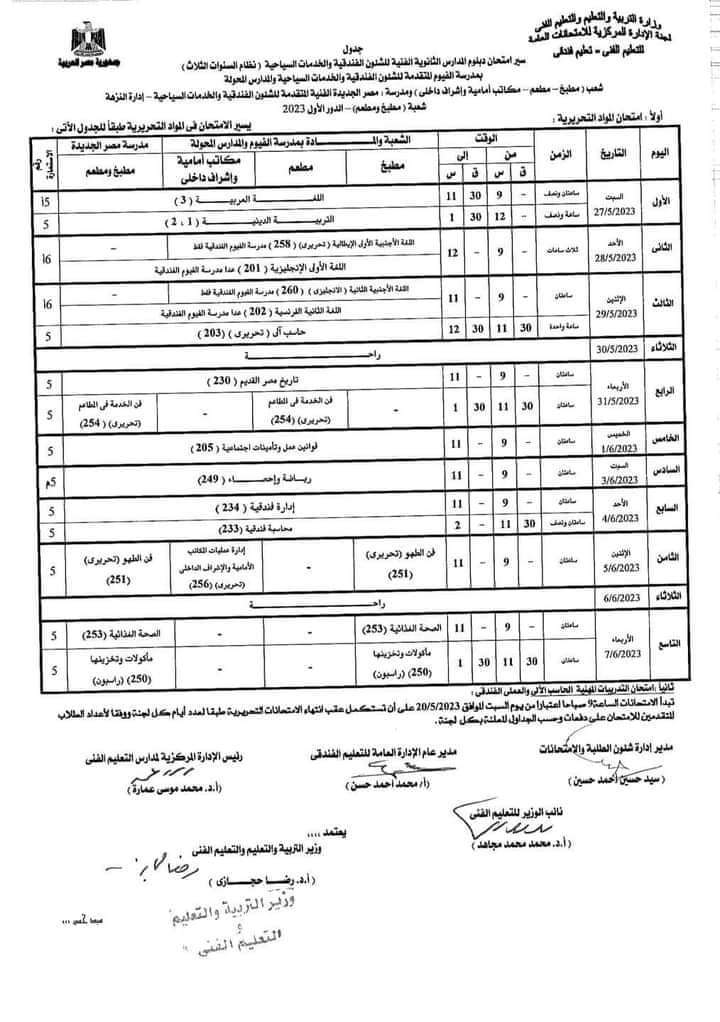 وزارة التربية والتعليم والتعليم الفنى
لجنة الإدارة المركزية للامتحانات العامة
للتعليم الفنى – تعليم فندقى
جمهورية مصر العربية
جدول
سير امتحان دبلوم المدارس الثانوية الفنية للشئون الفندقية والخدمات السياحية ( نظام السنوات الثلاث )
بمدرسة الفيوم المتقدمة للشئون الفندقية والخدمات السياحية والمدارس المحولة
شعب ( مطبخ – مطعم – مكاتب أمامية وإشراف داخلى ) ومدرسة : مصر الجديدة الفنية المتقدمة للشئون الفندقية والخدمات السياحية – إدارة النزهة
شعبة ( مطبخ ومطعم) – الدور الأول 2023
أولاً : امتحان المواد التحريرية : يسير الامتحان فى المواد التحريرية طبقاً للجدول الأتى :
اليوم التاريخ الزمن الوقت الشعبة والمــادة بمدرسة الفيوم والمدارس المحولة مدرسة مصر الجديدة رقم الاستمارة
من إلى مطبخ مطعم مكاتب أمامية وإشراف داخلى مطبخ ومطعم
ق س ق س
الأول السبت 27/5/2023 ساعتان ونصف - 9 30 11 اللغــة العربيــة ( 3 ) 15
ساعة ونصف - 12 30 1 التربيــة الدينيــة ( 1 ، 2 ) 5
الثانى الأحد 28/5/2023 ثلاث ساعات - 9 - 12 اللغة الأجنبية الأولى الإيطالية ( تحريرى) ( 258 ) مدرسة الفيوم الفندقية فقط - 16
اللغة الأولى الإنجليزية ( 201 ) عدا مدرسة الفيوم الفندقية
الثالث الإثنين 29/5/2023 ساعتان - 9 - 11 اللغة الأجنبية الثانية ( الانجليزى ) ( 260 ) مدرسة الفيوم الفندقية فقط - 16
اللغة الثانية الفرنسية ( 202 ) عدا مدرسة الفيوم الفندقية
ساعة واحدة 30 11 30 12 حاسب آلى ( تحريرى ) (203) 5
الثلاثاء 30/5/2023 راحــة
الرابع الأربعاء 31/5/2023 ساعتان - 9 - 11 تاريخ مصر القديم ( 230 ) 5
ساعتان 30 11 30 1 - فن الخدمة فى المطاعم (تحريرى) (254) - فن الخدمة فى المطاعم (تحريرى) ( 254 ) 5
الخامس الخميس 1/6/2023 ساعتان - 9 - 11 قوانين عمل وتأمينات اجتماعية ( 205 ) 5
السادس السبت 3/6/2023 ساعتان - 9 - 11 رياضة وإحصــاء ( 249 ) 5م
السابع الأحد 4/6/2023 ساعتان - 9 - 11 إدارة فندقية ( 234 ) 5
ساعتان ونصف 30 11 - 2 محاسبة فندقية (233) 5
الثامن الإثنين 5/6/2023 ساعتان - 9 - 11 فن الطهو (تحريرى) (251) - إدارة عمليات المكاتب الأمامية والإشراف الداخلى (تحريرى) (256) فن الطهو (تحريرى) (251) 5
الثلاثاء 6/6/2023 راحــة
التاسع الأربعاء 7/6/2023 ساعتان - 9 - 11 الصحة الغذائية (253) - - الصحة الغذائية (253) 5
ساعتان 30 11 30 1 مأكولات وتخزينها (250) (راسبون) - - مأكولات وتخزينها (250) (راسبون) 5
ثانياً : امتحان التدريبات المهنية الحاسب الآلى والعملى الفندقى :
تبدأ الامتحانات الساعة 9 صباحا اعتباراً من يوم السبت الموافق 20/5/2023 على أن تستكمل عقب انتهاء الامتحانات التحريرية طبقا لعدد أيام كل لجنة ووفقا لأعداد الطلاب
المتقدمين للامتحان على دفعات وحسب الجداول المعلنة بكل لجنة.
مدير إدارة شئون الطلبة والامتحانات مدير عام الإدارة العامة للتعليم الفندقى رئيس الإدارة المركزية لمدارس التعليم الفنى
( سيد حسين أحمد حسين ) (أ/ محمد أحمد حسن ) (أ.د. محمد موسى عمارة)
نائب الوزير للتعليم الفنى
( أ.د. محمد محمد مجاهد )
يعتمد ،،،،
وزير التربية والتعليم والتعليم الفنى
(أ.د. رضــا حجــازى )
وزير التربية والتعليم
و
التعليم الفنى